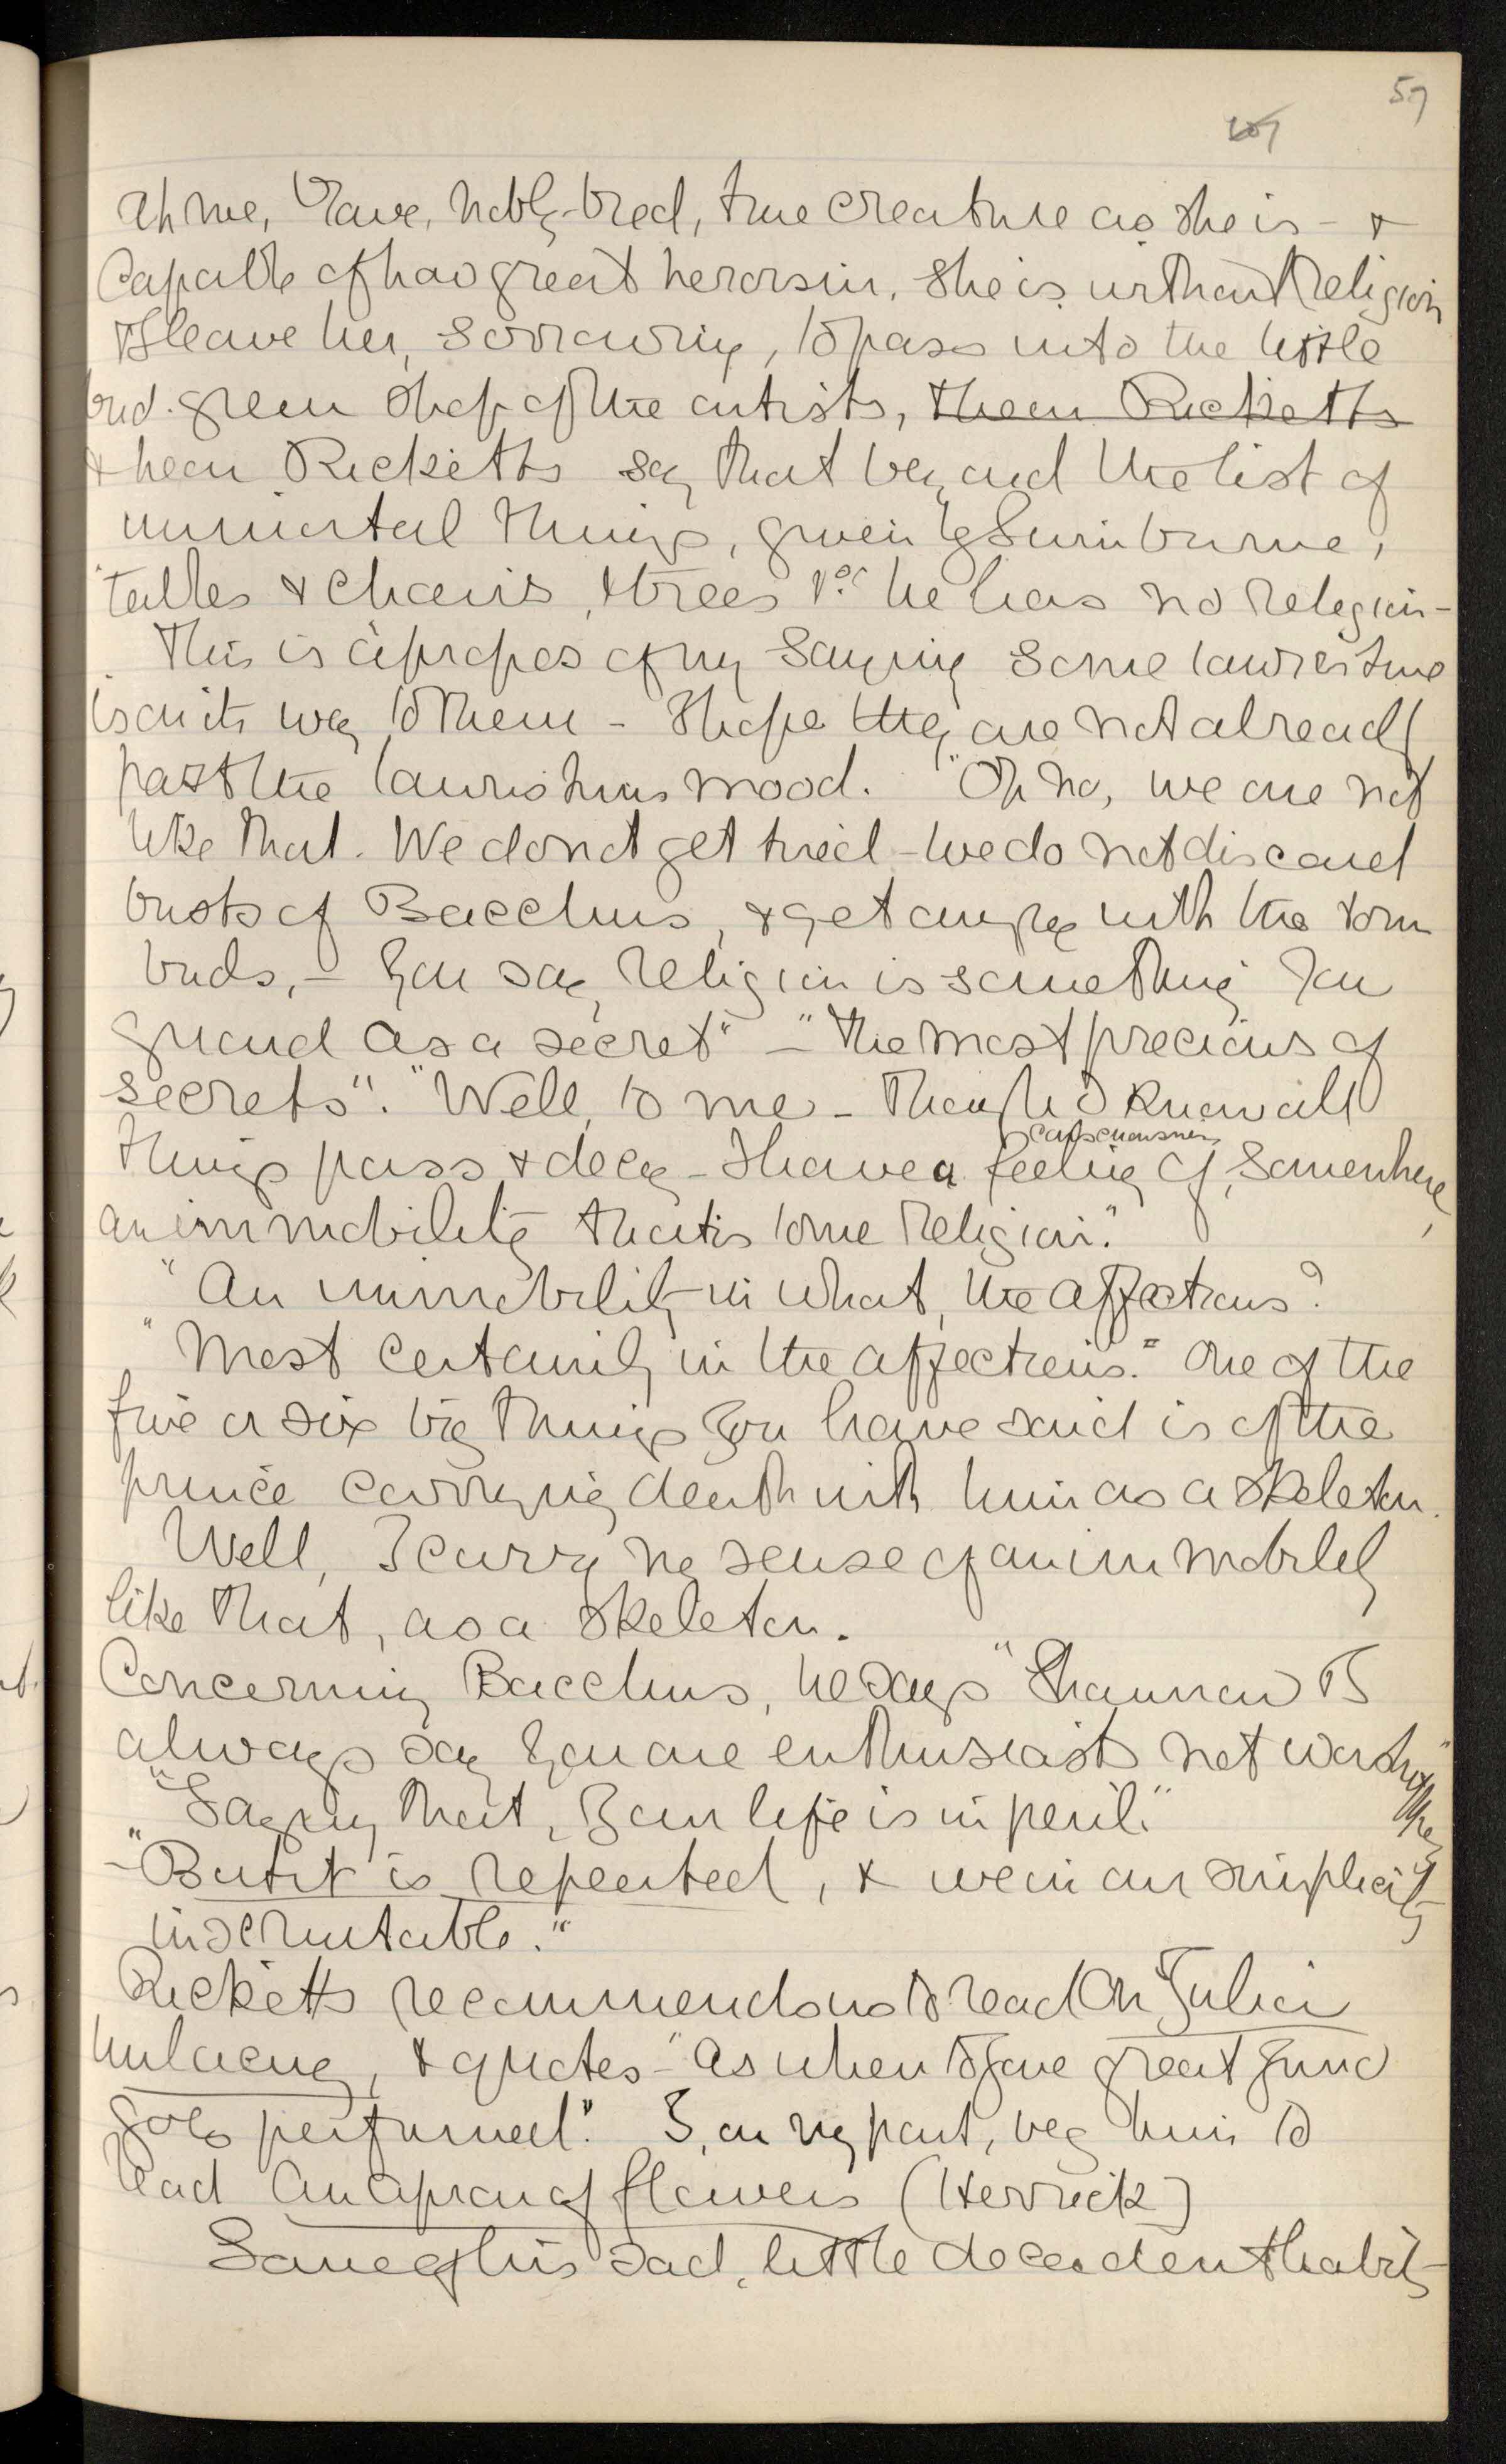 57
Ah me, brave, nobly-bred, true creature as she is - &
Capable of how great heroism, she is without Religion
& I leave her, sorrowing, to pass into the little
bud-green shop of the artists,
& hear Ricketts say that beyond the list of
immortal things, given by Swinburne,
tables & chairs, & trees &c he has no religion -
This is àpropos of my saying some laurestine
is on its way to them - I hope they are not already
past the laurustinus mood. "Oh no, we are not
like that. We do not get tired - we do not discard
busts of Bacchus, & get angry with the torn
buds, - You say religion is something you
guard as a secret" - "the most precious of
secrets". "Well, to me - though I know all
consciousness
things pass & decay - I have a feeling of, somewhere,
an immobility that is to me religion."
"An immobility in what, the affections?
"Most certainly in the affections." One of the
five or six big things you have said is of the
prince carrying death with him as a skeleton.
Well, I carry my sense of an immobility
like that, as a skeleton.
Concerning Bacchus, he says "Shannon & I
always say you are enthusiasts not worshippers"
"Saying that, your life is in peril."
- "But it is repeated, & we in our simplicity
inscrutable."
Ricketts recommends us to read On Julia
unlacing, & quotes - "As when to Jove great Juno
goes perfumed". I, on my part, beg him to
read An apron of flowers (Herrick)
Some of his sad, little decadent habits